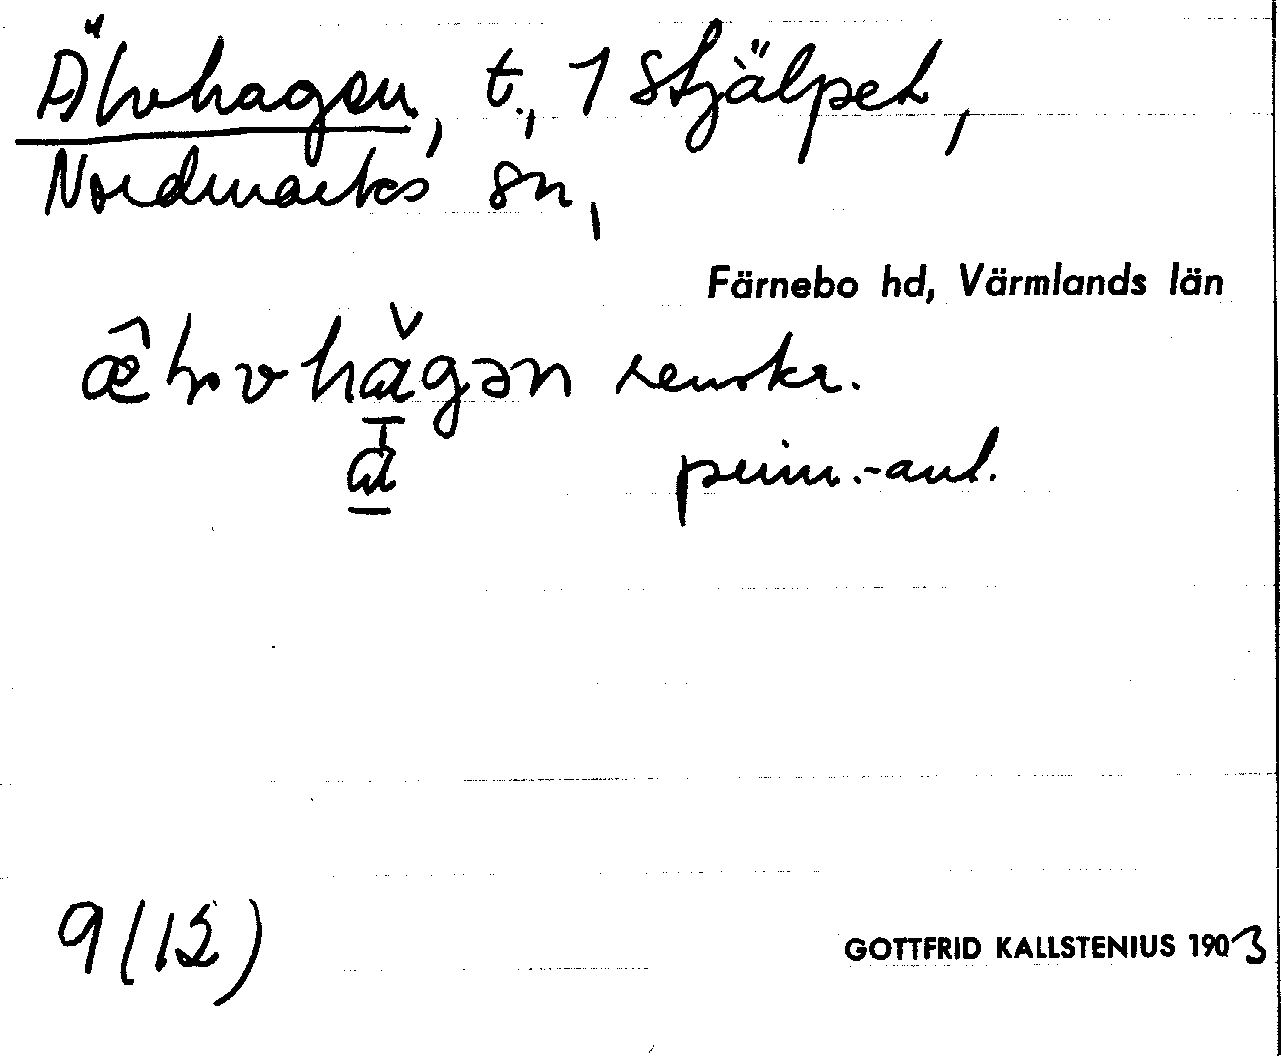 Älvhagen, t., 1 Stjälpet,
Nordmarks sn,
Färnebo hd, Värmlands län
renskr.
a prim.-ant.
9(12)
GOTTFRID KALLSTENIUS 1903